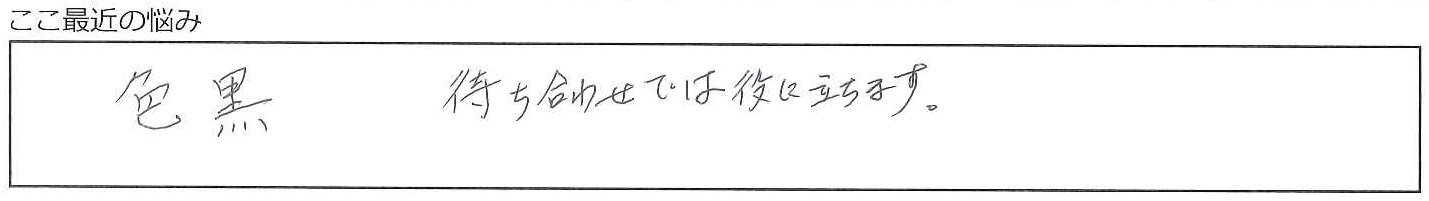 ここ最近の悩み
色黒 待ち合わせでは役に立ちます。